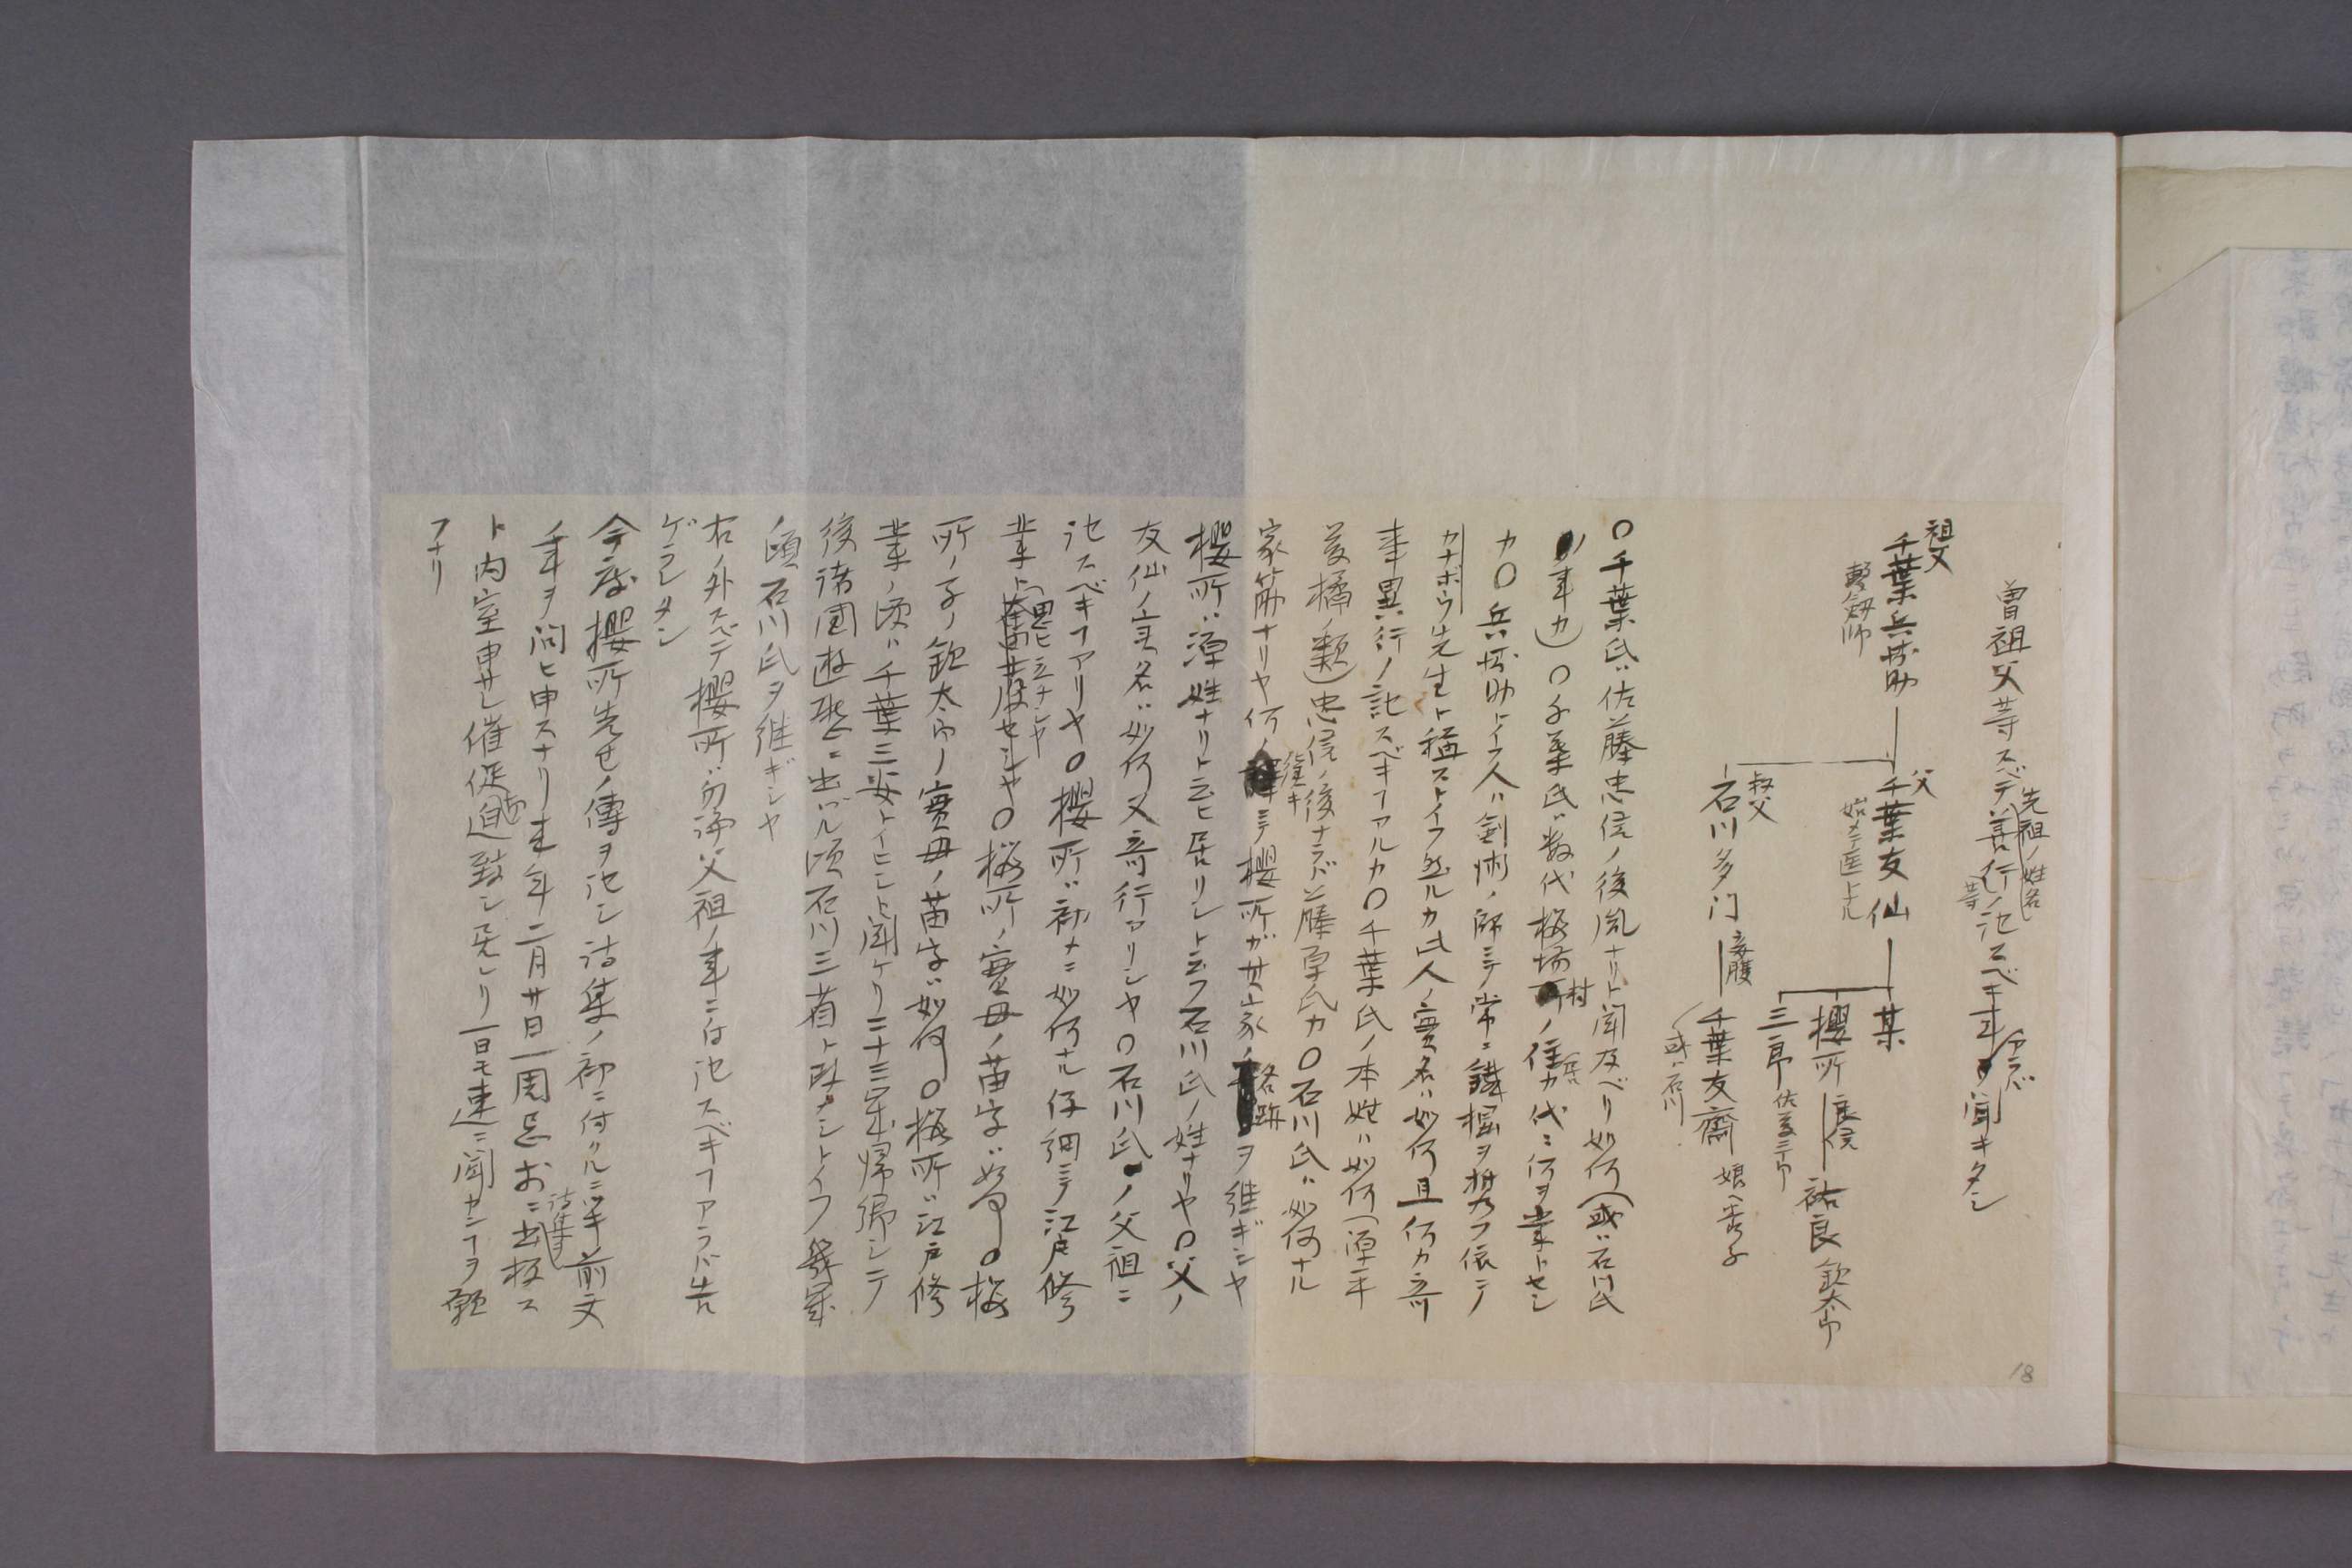 曽祖父等スベテ善行等ノ記スベキ事アラバ聞キタシ
先祖ノ姓名
祖父
千葉兵助
撃剱師
父
千葉友仙
始メテ医トナル
叔父
石川多门
妾腹
千葉友齋
或ハ石川
娘ヘ養子
某
櫻所
良信
祐良
欽太郎
三郎
佐藤三郎
〇千葉氏ハ佐藤忠信ノ後胤ナリト聞及ベリ如何(或ハ石川氏
ノ事カ)〇千葉氏ハ数代桜場村ノ住カ代々何ヲ業トセシ
カ〇兵助トイフ人ハ剣術ノ師ニテ常ニ鐵棍ヲ携フ依テ
カナボウ先生ト稱ストイフ然ルカ此人ノ實名ハ如何且何カ奇
事異行ノ記スベキヿアルカ〇千葉氏ノ本姓ハ如何(源平
藤橘ノ類)忠信ノ後ナラバ藤原氏カ〇石川氏ハ如何ナル
家筋ナリヤ何ノ縁ニテ櫻所ガ其家ノ名跡ヲ継ギシヤ
櫻所ハ源姓ナリト云ヒ居リシト云フ石川氏ノ姓ナリヤ〇父ノ
友仙ノ実名ハ如何又奇行アリシヤ〇石川氏ノ父祖ニ
記スベキヿアリヤ〇櫻所ハ初メニ如何ナル仔細ニテ江戸修
業ト思ヒ立チシヤ〇桜所ノ實母ノ苗字ハ如何〇桜
所ノ子ノ欽太郎ノ實母ノ苗字ハ如何〇桜所ハ江戸修
業ノ頃ハ千葉三安トイヒシト聞ケリ二十三年帰郷シテ
後諸国遊歴ニ出ヅル頃石川三省ト改メシトイフ幾年
頃石川氏ヲ継ギシヤ
右ノ外スベテ櫻所ハ勿論父祖ノ事ニ付記スベキヿアラバ告
ゲラレタシ
今度櫻所先生ノ傳ヲ記シ詩集ノ初ニ付クルニツキ前文
ノ事ヲ問ヒ申スナリ来年二月廿日一周忌お二詩集ヲ出板ス
ト内室申サレ催促迫致シ居レリ一日モ速ニ聞カンヿヲ願
フナリ
18